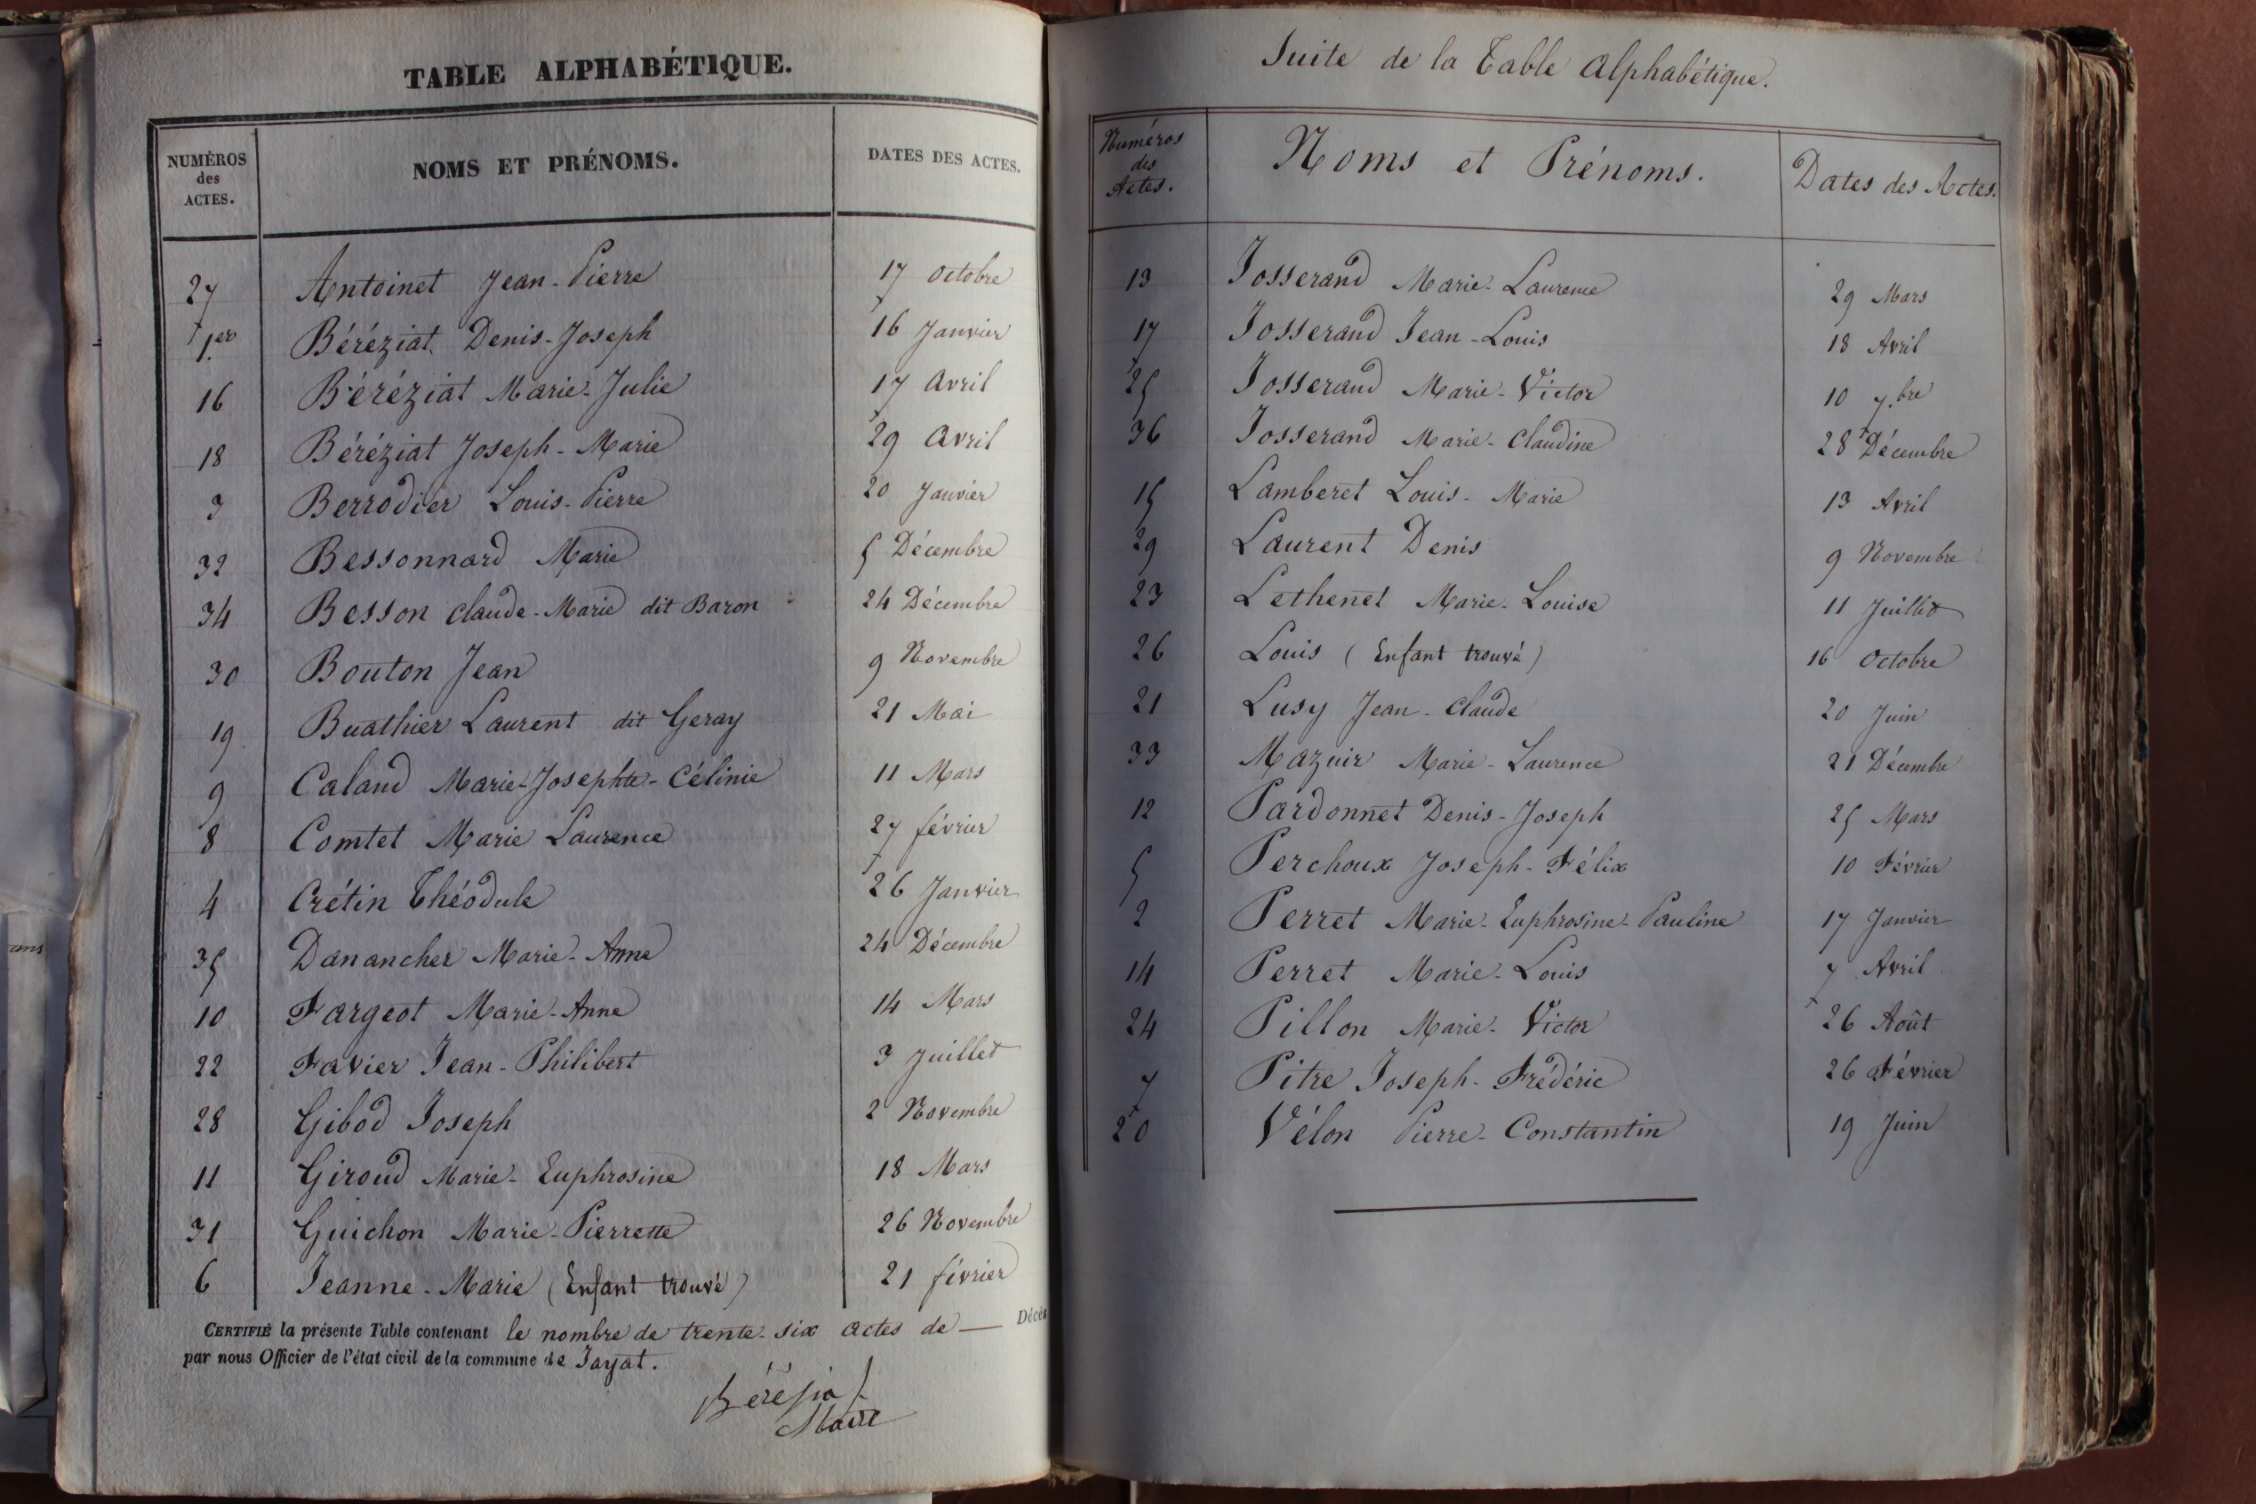 TABLE ALPHABÉTIQUE.
NUMÉROS des ACTES. NOMS ET PRÉNOMS. DATES DES ACTES.
27 Antoinet Jean-Pierre 17 Octobre
1.er Béréziat Denis-Joseph 16 Janvier
16 Béréziat Marie-Julie 17 Avril
18 Béréziat Joseph-Marie 29 Avril
3 Berrodier Louis-Pierre 20 Janvier
32 Bessonnard Marie 5 Décembre
34 Besson Claude-Marie dit Baron 24 Décembre
30 Bouton Jean 9 Novembre
19 Buathier Laurent dit Geray 21 Mai
9 Caland Marie-Josephte-Célinie 11 Mars
8 Comtet Marie Laurence 27 février
4 Crétin Théodule 26 Janvier
35 Danancher Marie-Anne 24 Décembre
10 Fargeot Marie-Anne 14 Mars
22 Favier Jean-Philibert 3 Juillet
28 Gibod Joseph 2 Novembre
11 Giroud Marie-Euphrosine 18 Mars
31 Guichon Marie-Pierrette 26 Novembre
6 Jeanne-Marie (Enfant trouvé) 21 février
CERTIFIÉ la présente Table contenant le nombre de trente-six actes de — Décès
par nous Officier de l'état civil de la commune de Jayat.
Bérésiat
Maire
Suite de la Table Alphabétique.
Numéros des Actes. Noms et Prénoms. Dates des Actes.
13 Josserand Marie-Laurence 29 Mars
17 Josserand Jean-Louis 18 Avril
25 Josserand Marie-Victor 10 7.bre
36 Josserand Marie-Claudine 28 Décembre
15 Lamberet Louis-Marie 13 Avril
29 Laurent Denis 9 Novembre
23 Lethenet Marie-Louise 11 Juillet
26 Louis (Enfant trouvé) 16 Octobre
21 Lusy Jean-Claude 20 Juin
33 Mazuir Marie-Laurence 21 Décembre
12 Pardonnet Denis-Joseph 25 Mars
5 Perchoux Joseph-Félix 10 Février
2 Perret Marie-Euphrosine-Pauline 17 Janvier
14 Perret Marie-Louis 7 Avril
24 Pillon Marie-Victor 26 Août
7 Pitre Joseph-Frédéric 26 Février
20 Vélon Pierre-Constantin 19 Juin